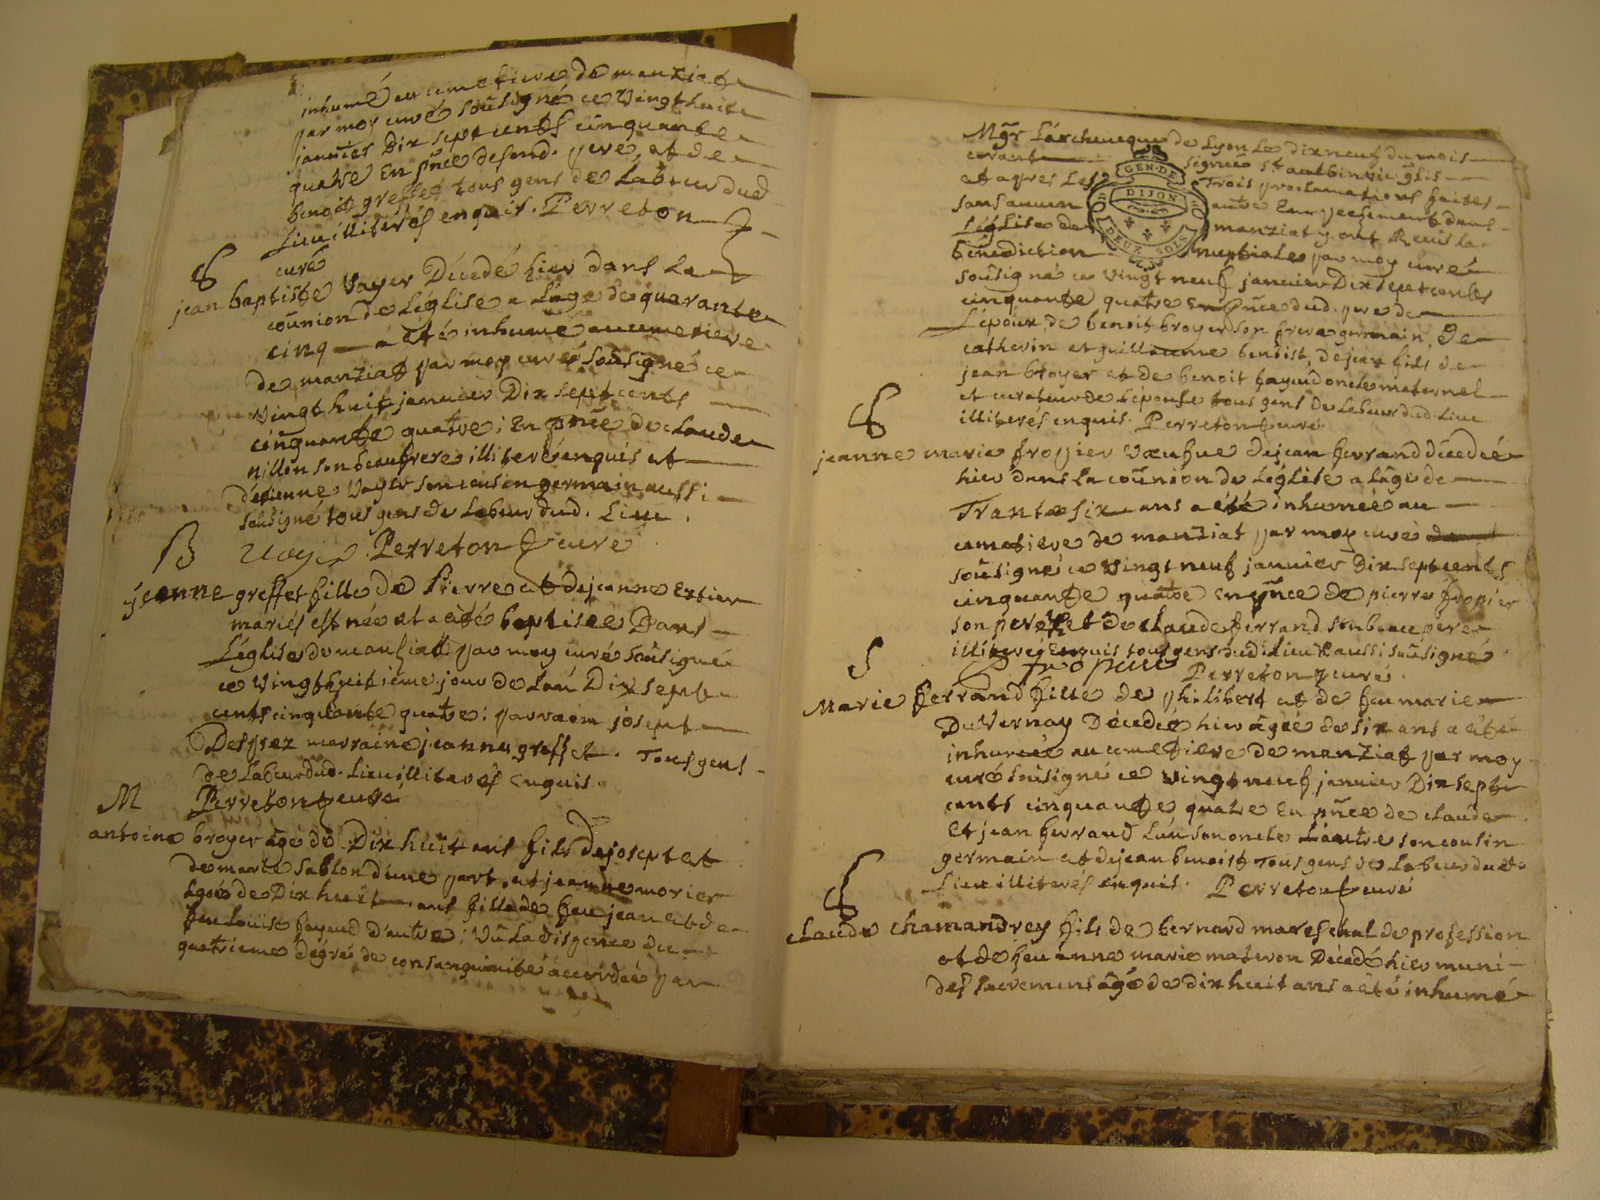 inhumé au cimetiere de manziat
par moy curé soûsigné ce vingt huit
janvier Dix sept cents cinquante
quatre En pñce desond. pere, et de
benoit greffet tous gens de Labeur dud.
Lieu illiterés enquis. Perreton
curé
S
jean baptiste Vayer Décedé hier dans La
coũnion de L'église a L'âge de quarante
cinq a été inhumé au cimetiere
de manziat par moy curé soûsigné ce
vingt huit janvier Dix sept cents
cinquante quatre; En pñce de claude
nillon son beaufrere illiteré enquis et
d'étienne Vayer son cousin germain aussi
soûsigné tous gens de Labeur dud. Lieu.
B Vayer. Perreton curé
jeanne greffet fille de Pierre et de jeanne Extier
mariés est née et a été baptisée Dans
L'église de manziat par moy curé soûsigné
ce vingthuitième jour de L'an Dix sept
cents cinquante quatre; parrain josept
Desprez marraine jeanne greffet. Tous gens
de Labeur dud. Lieu illiterés Enquis.
M Perreton curé
antoine broyer âgé de Dix huit ans fils de josept et
de marie sablon d'une part, et jeanne morier
âgée de Dix huit ans fille de feu jean et de
feu Louise fayeud d'autre; Vû La dispence du
quatrieme dégré de consanguinité accordée par
Mgr L'archeveque de Lyon Le dix neuf du mois
courant signée St aubin vic. gl.
et apres Les Trois proclamations faites
sans aucun autre Empechement dans
L'église de manziat y ont Reçu la
bénédiction nuptiale par moy curé
soûsigné ce vingt neuf janvier Dix sept cents
cinquante quatre En pñce dud. pere de
L'époux, de benoit broyer son frere germain, De
catherin et guillaume benoist, de jean fils de
jean broyer et de benoit fayeud oncle maternel
et curateur de L'épouse tous gens de Labeur dud. Lieu
illiterés enquis. Perreton curé
S
jeanne marie fropier Veufue de jean ferrand décedée
hier dans la coũnion de L'église a L'âge de
Trante six ans a été inhumée au
cimetiere de manziat par moy curé
soûsigné ce vingt neuf janvier Dix sept cents
cinquante quatre En pñce de pierre fropier
son pere et de claude ferrand son beau pere
illiteré Enquis tous gens dud. Lieu aussi soûsigné
S fropier Perreton curé.
Marie ferrand fille de philibert et de feu marie
Du Vernay Décedée hier âgée de six ans a été
inhumée au cimetiere de manziat par moy
curé soûsigné ce vingt neuf janvier Dix sept
cents cinquante quatre En pñce de claude
Et jean ferrand L'un son oncle L'autre son cousin
germain et de jean benoist Tous gens de Labeur dud.
Lieu illiterés enquis. Perreton curé
S
claude chamandrey fils de bernard mareschal de profession
et de feu anne marie matron Décedé hier muni
des sacremens âgé de dix huit ans a été inhumé
GEN. DE
DIJON
DEUX SOLS